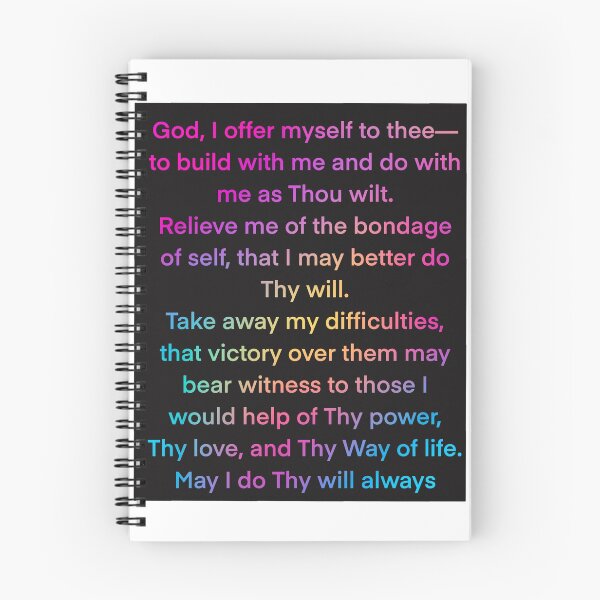 God, I offer myself to thee—
to build with me and do with
me as Thou wilt.
Relieve me of the bondage
of self, that I may better do
Thy will.
Take away my difficulties,
that victory over them may
bear witness to those I
would help of Thy power,
Thy love, and Thy Way of life.
May I do Thy will always